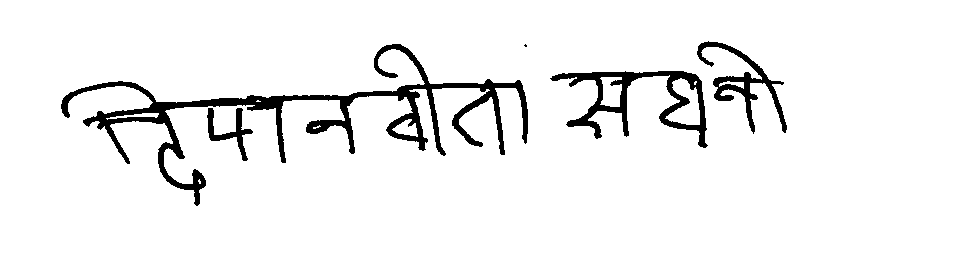 दिपानवीता सधनी